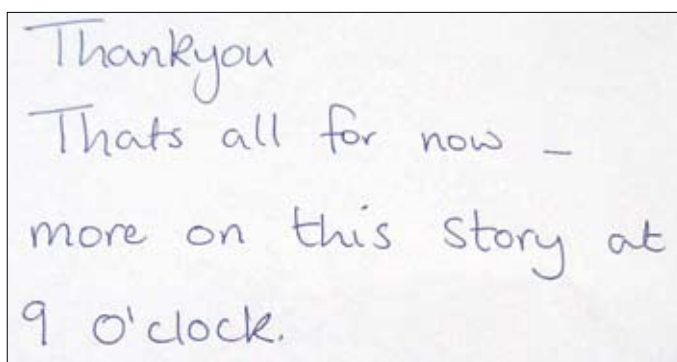 Thankyou
Thats all for now –
more on this story at
9 o'clock.